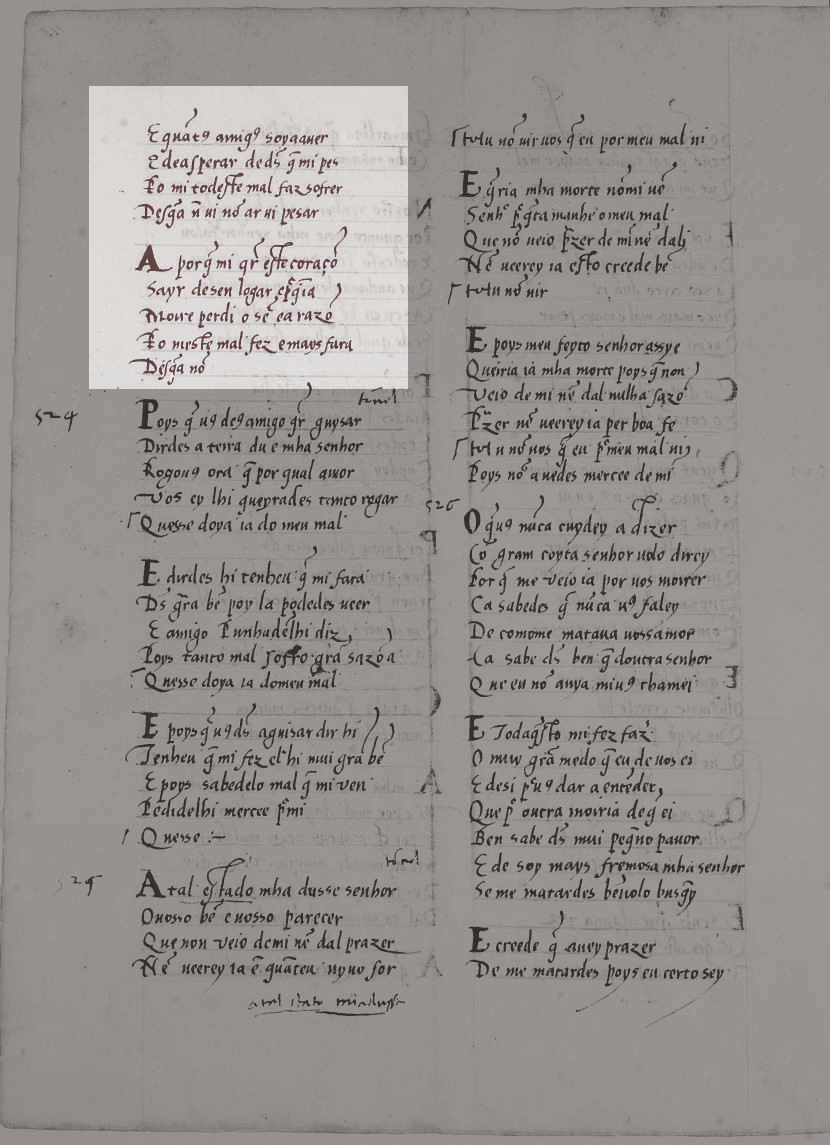 E quãt9 amig9 soyaauer
E deasperar deds q̃ mi pes
Eo mi todeste mal faz sofrer
Desq̃a ñ ui nõ ar ui pesar
A porq̃ mi qr̃ estecoraçõ
Sayr desen logar, e
Moire perdi o sẽ ea razõ
Eo meste mal fez emays fara
Desq̃a nõ
tẽnel
524
Poys q̃ u9 de9 amigo qr̃ guysar
Dirdes a terra du e mha senhor
Rogou9 ora q̃ por qual amor
Vos ey lhi queyrades tanto rogar
Quesse doya ia do meu mal
E dirdes lhi tenheu q̃ mi fara
Ds grã bẽ poy la podedes ueer
E amigo punhadelhi diz,
Poys tanto mal soffro grã sazõ a
Quesse doya ia domeu mal
E poysq̃u9ds aguisar dir hi
Tenheu q̃ mi fez el hi mui grã bẽ
E poys sabedelo mal q̃ mi ven
Pedidelhi mercee p̃ mi
Quesse :~
tornel
525
Atal estado mha dusse senhor
Ouosso bẽ e uosso parecer
Que non veio demi nẽ dal prazer
Nẽ ueerey ia ẽ quãteu uyuo for
atal stato miadusse
nõ uir uos q̃ eu por meu mal ui
E q̃ria mha morte nõmi uẽ
Senhr p̃ q̃ta manhe o meu mal
Que nõ ueio p̃zer de mi nẽ dal
Nẽ ueerey ia esto creede bẽ
nõ uir
E poys meu feyto senhor assy e
Queiria iá mha morte poys q̃ non
Veio de mi nẽ dal nulha sazõ
P̃zer nẽ ueerey ia per boa fe
uos q̃ eu p̃ meu mal ui
Poys nõ auedes mercee de mi
526
O q̃u9 nũca cuydey a dizer
Cõ gram coyta senhor uolo direy
Porq̃ me veio ia por uos morrer
Ca sabedes q̃ nũca u9 faley
De comome mataua uossamor
Ca sabe ds ben q̃ doutra senhor
Que eu nõ auya miu9 chamei
E Todaq̃sto mi fez faz̃
O muy grã medo q̃ eu de uos ei
E desi p̃ u9 dar a entẽder,
Que p̃ outra moiria de q̃ ei
Ben sabe ds mui peq̃no pauor
E de soy mays fremosa mha senhor
Se me matardes bẽ uolo busq̃y
E creede q̃ auey prazer
De me matardes poys eu certo sey